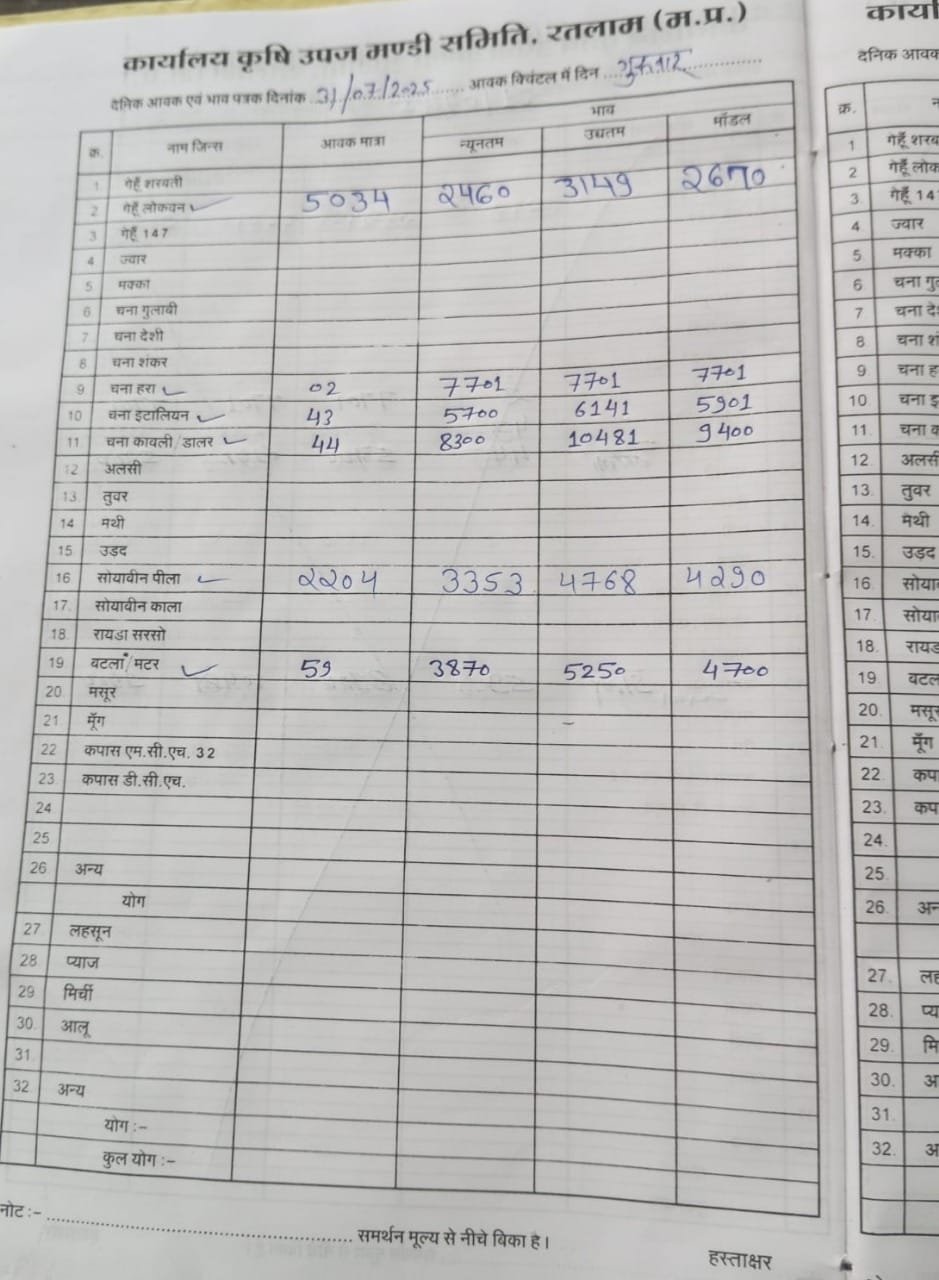 कार्यालय कृषि उपज मण्डी समिति, रतलाम (म.प्र.)
दैनिक आवक एवं भाव पत्रक दिनांक 31/07/2025 आवक क्विंटल में दिन
क्र. नाम जिन्स आवक मात्रा भाव
न्यूनतम उच्चतम मॉडल
1 गेहूँ शरबती
2 गेहूँ लोकवन ✓ 5034 2460 3149 2670
3 गेहूँ 147
4 ज्वार
5 मक्का
6 चना गुलाबी
7 चना देशी
8 चना शंकर
9 चना हरा ✓ 02 7701 7701 7701
10 चना इटालियन ✓ 43 5700 6141 5901
11 चना काबली/डालर ✓ 44 8300 10481 9400
12 अलसी
13. तुवर
14 मैथी
15 उड़द
16 सोयाबीन पीला ✓ 2204 3353 4768 4290
17. सोयाबीन काला
18. रायडा सरसो
19 बटला/मटर ✓ 59 3870 5250 4700
20. मसूर
21 मूँग
22 कपास एम.सी.एच. 32
23. कपास डी.सी.एच.
24
25
26 अन्य
योग
27. लहसून
28 प्याज
29 मिर्ची
30. आलू
31.
32. अन्य
योग :-
कुल योग :-
नोट :- समर्थन मूल्य से नीचे बिका है।
हस्ताक्षर
दैनिक आवक
क्र.
1 गेहूँ शरब
2 गेहूँ लोक
3 गेहूँ 14
4 ज्वार
5 मक्का
6 चना गु
7 चना दे
8 चना शं
9 चना ह
10 चना इ
11. चना क
12. अलसी
13. तुवर
14. मैथी
15. उड़द
16. सोया
17. सोया
18. रायड
19. बटल
20. मसूर
21. मूँग
22. कपा
23. कप
24.
25.
26. अन
27. लह
28. प्य
29. मि
30. अ
31.
32. अ